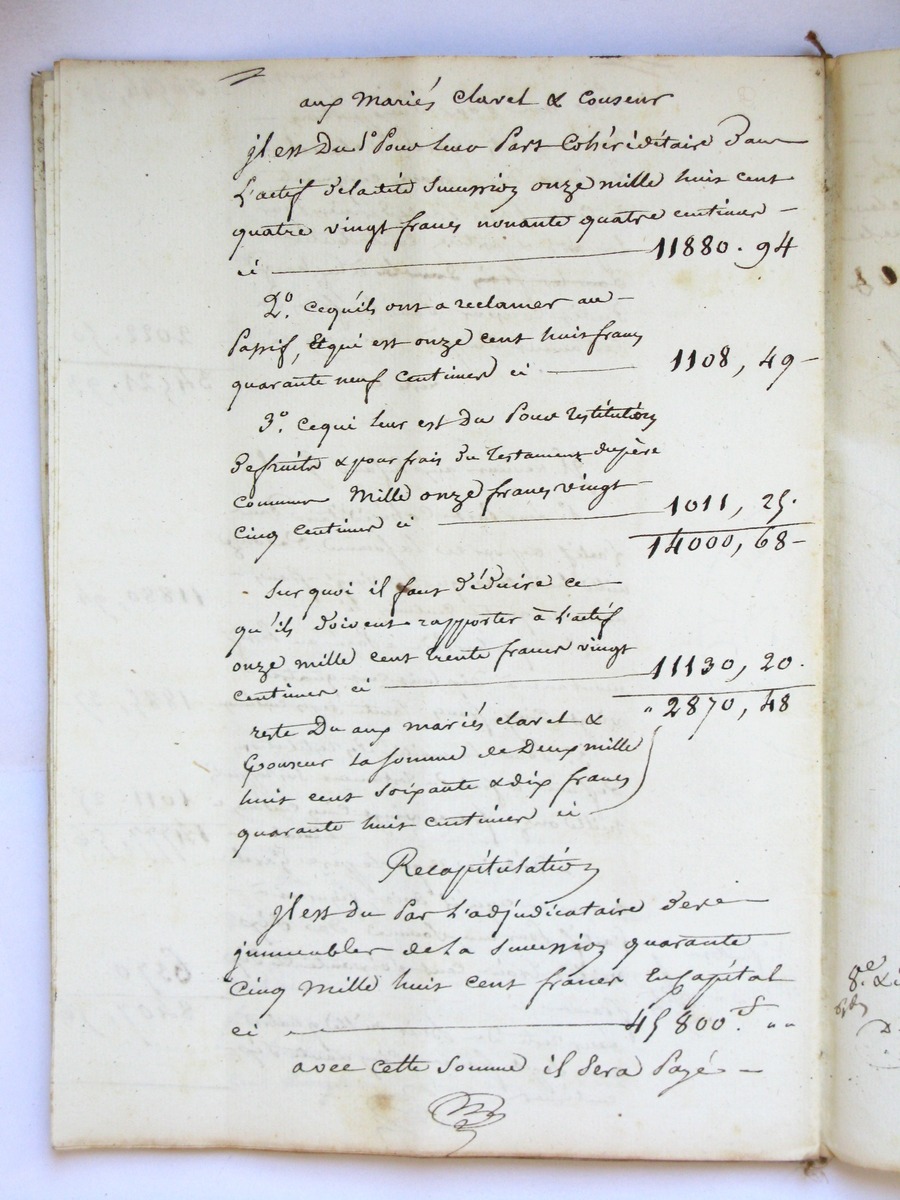 aux mariés clavel & couseur
jl est Du 1° Pour leur Part Cohéréditaire Dans
L'actif de la dité Succession onze mille huit cent
quatre vingt francs nonante quatre centimes –
ci — 11880 . 94
2°. ce qu'ils ont a reclamer au –
Passif, Et qui est onze cent huit francs
quarante neuf Centimes ci — 1108 , 49 –
3°. ce qui leur est du Pour restitution
de fruits & pour frais du testament du père
commun Mille onze francs vingt –
cinq centimes ci — 1011 , 25 .
14000 , 68 –
Sur quoi il faut déduire ce
qu'ils doivent rapporter à L'actif
onze mille cent trente francs vingt
centimes ci — 11130 , 20 .
" 2870 , 48
reste Du aux mariés clavel &
Couseur La somme de Deux mille
huit cent soixante & dix francs
quarante huit centimes ci –
Recapitulation
jl est du Par L'adjudicataire des
jmmeubles de La Succession quarante
Cinq Mille huit cent francs En Capital
ci — 45800 . f " "
avec cette somme il Sera Payé –